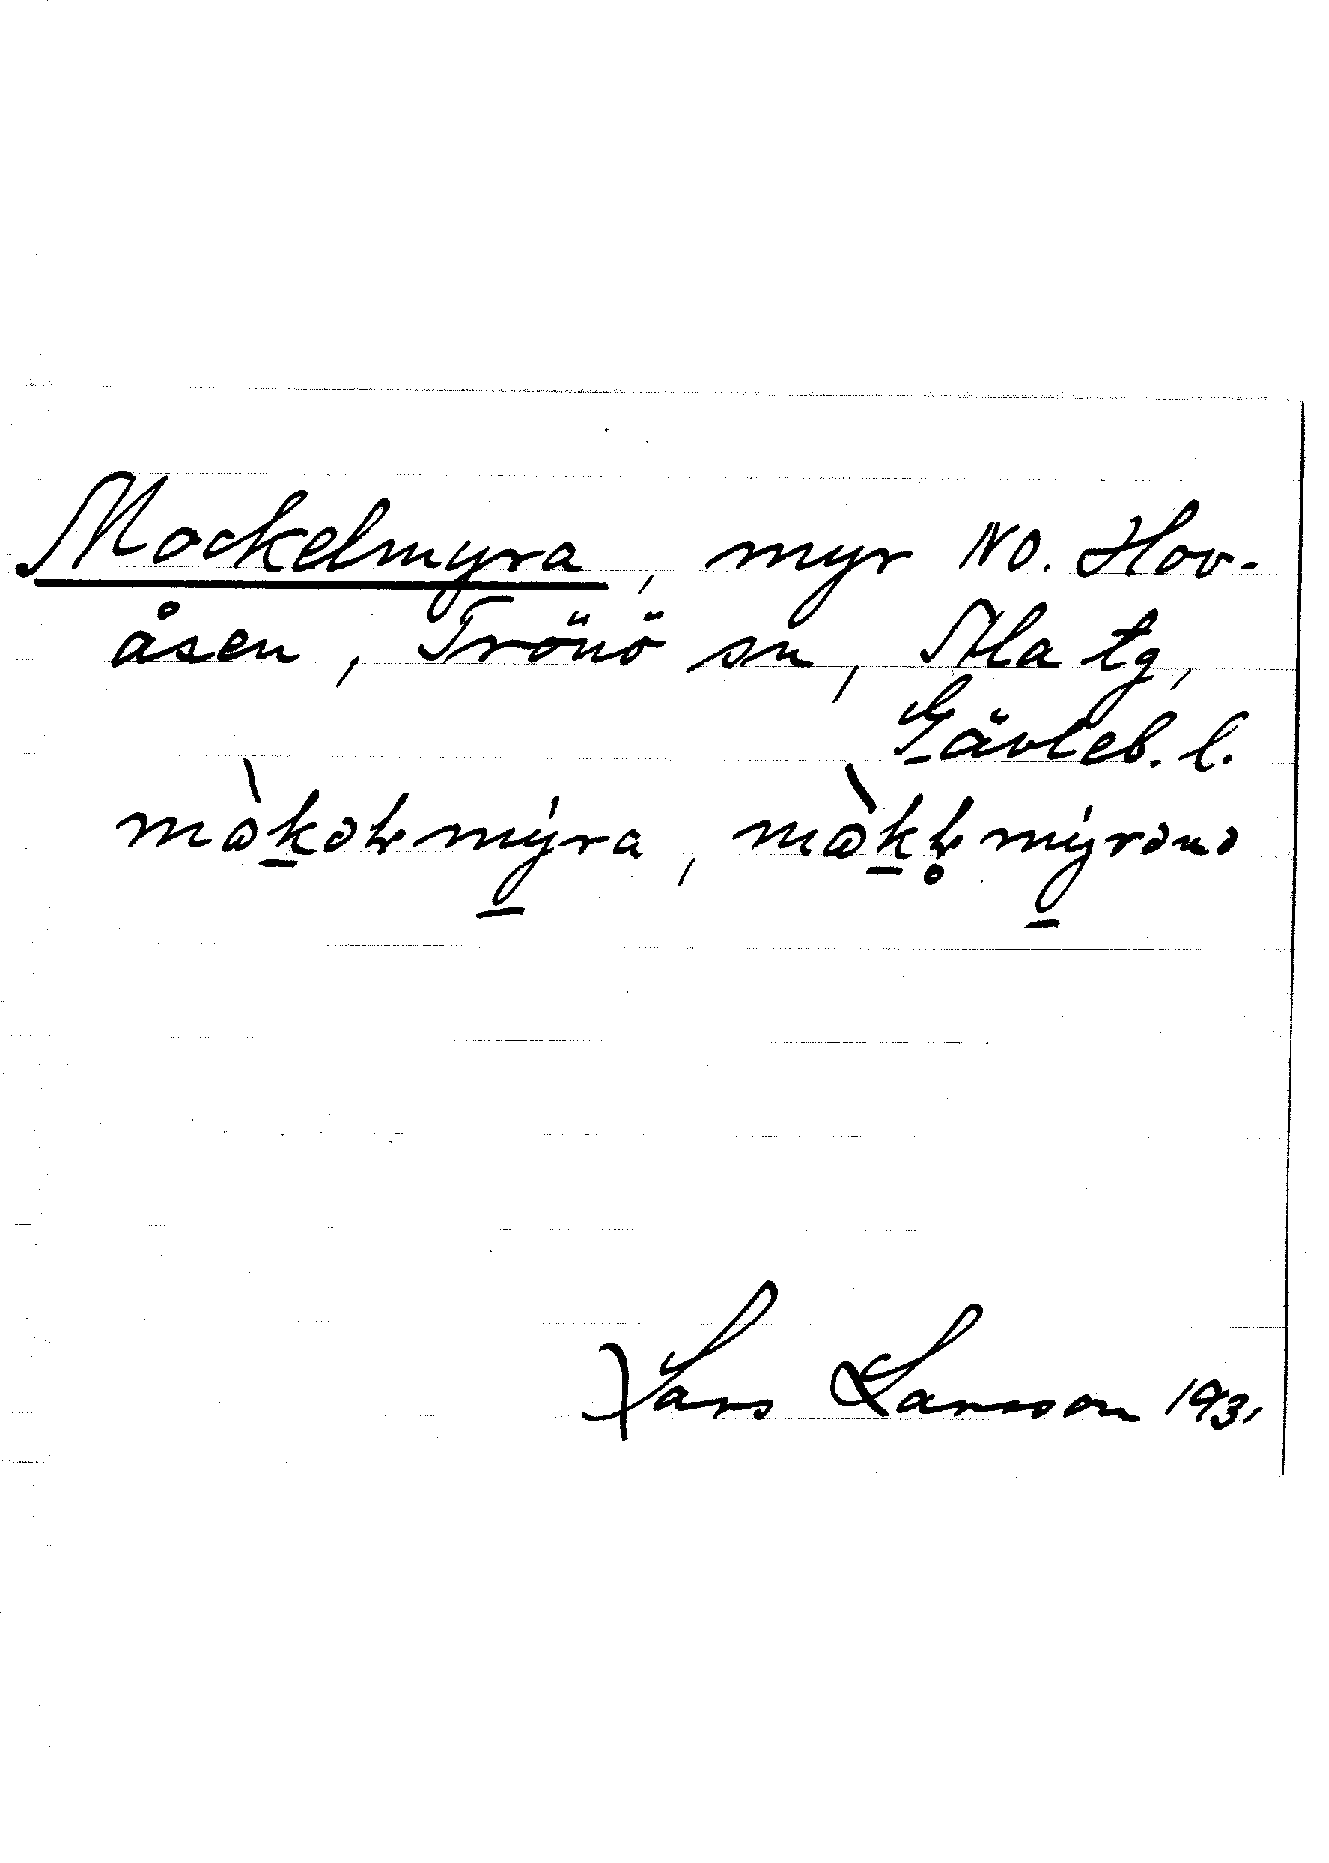 Mockelmyra, myr NO. Hov-
åsen, Trönö sn, Ala tg,
Gävleb. l.
mòkəɫmýra, mòkɫ̥mýrənə
Lars Larsson 1931